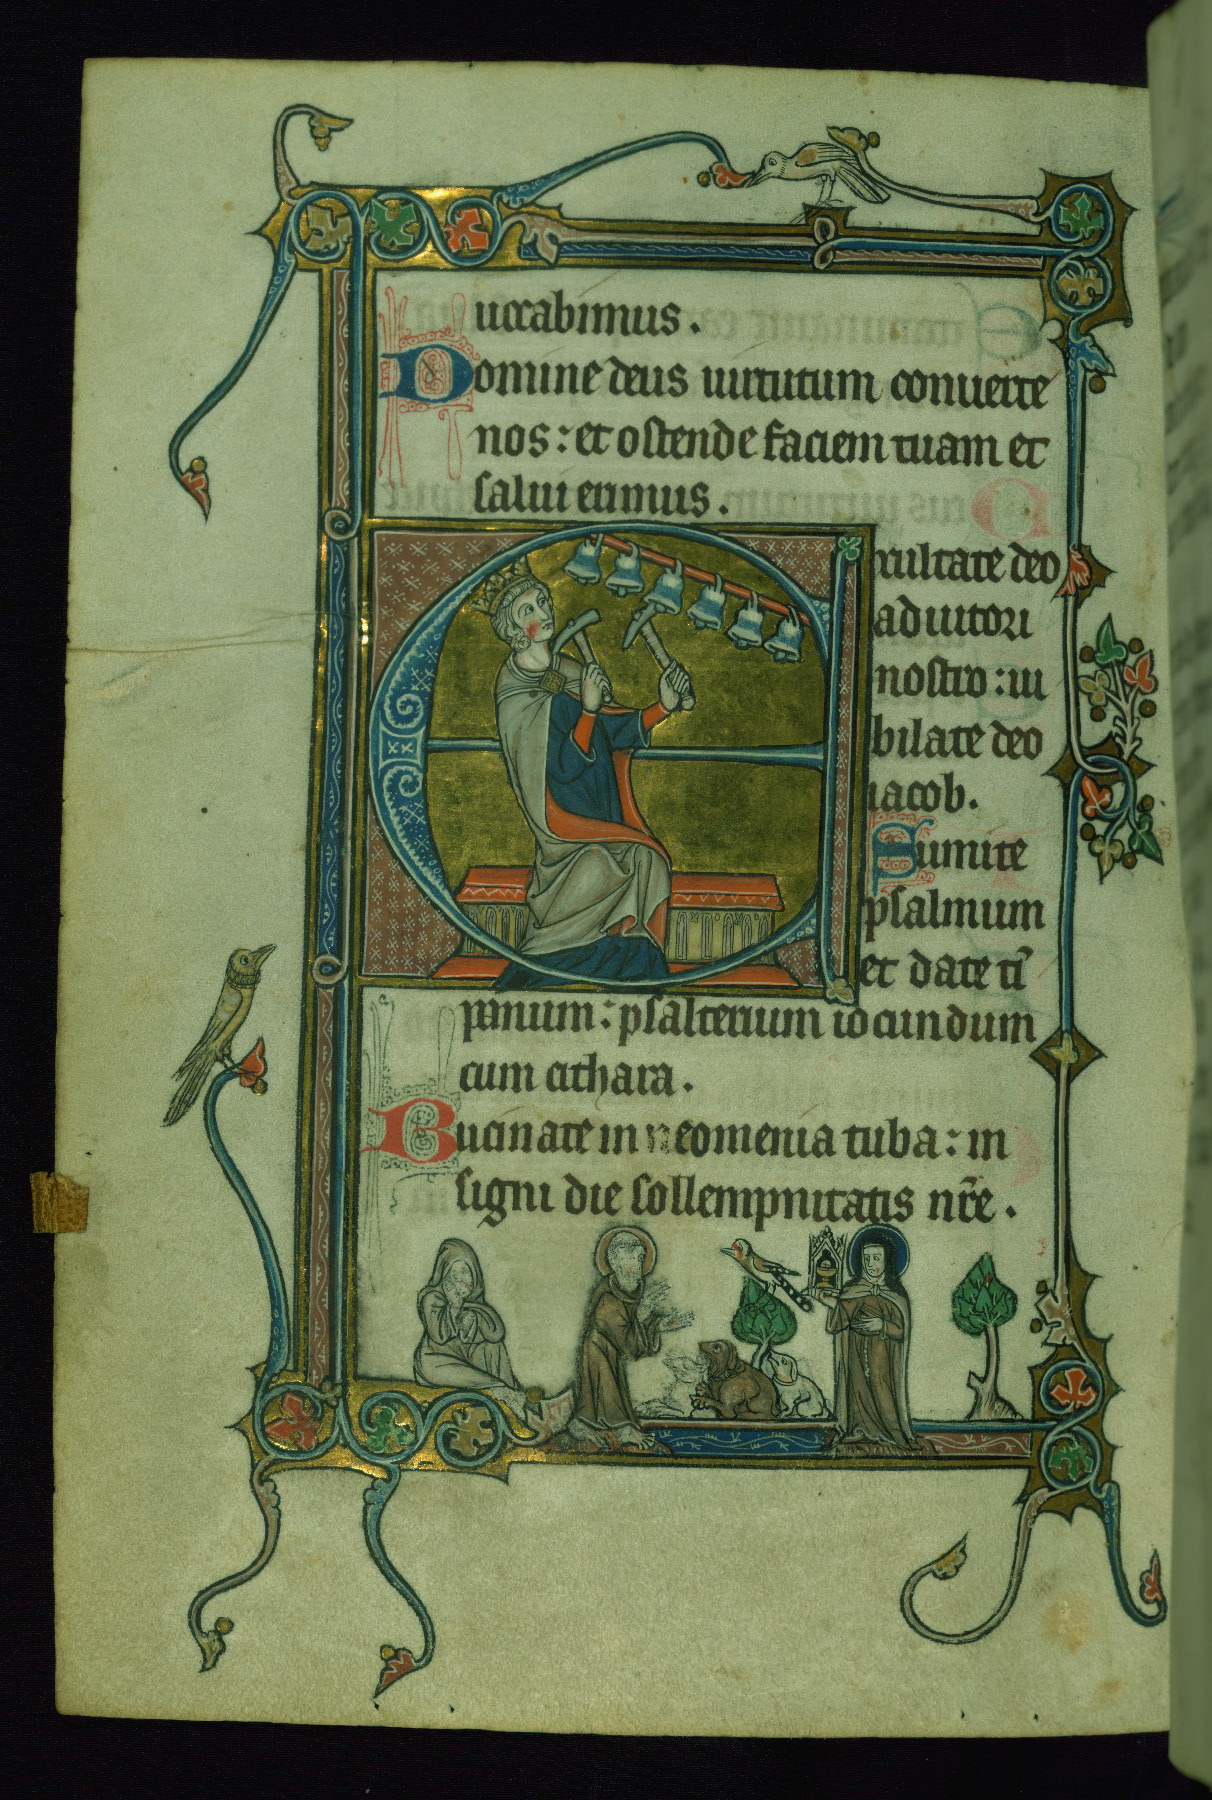 uocabimus.
Domine deus uirtutum conuerte
nos: et ostende faciem tuam et
salui erimus.
Exultate deo
adiutori
nostro: iu
bilate deo
iacob.
Sumite
psalmum
et date tī
panum: psalterium iocundum
cum cithara.
Bucinate in neomenia tuba: in
signi die sollempnitatis nr̄e.